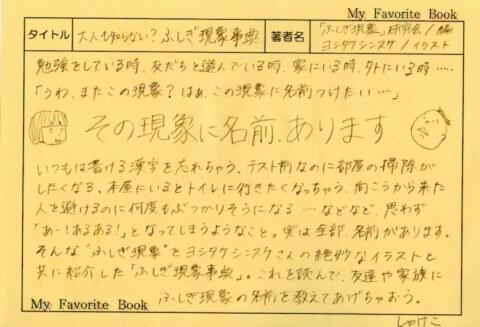 My Favorite Book
タイトル 大人も知らない?ふしぎ現象事典 著者名 「ふしぎ現象」研究会/編
ヨシタケシンスケ/イラスト
勉強をしている時、友だちと遊んでいる時、家にいる時、外にいる時……
「うわ、またこの現象?はぁ、この現象に名前つけたい…」
その現象に名前、あります
いつもは書ける漢字を忘れちゃう、テスト前なのに部屋の掃除が
したくなる、本屋にいるとトイレに行きたくなっちゃう、向こうから来た
人を避けるのに何度もぶつかりそうになる…などなど、思わず
「あー!あるある!」となってしまうようなこと。実は全部、名前があります。
そんな"ふしぎ現象"をヨシタケシンスケさんの絶妙なイラストと
共に紹介した「ふしぎ現象事典」。これを読んで、友達や家族に
ふしぎ現象の名前を教えてあげちゃおう。
My Favorite Book
しゃけこ